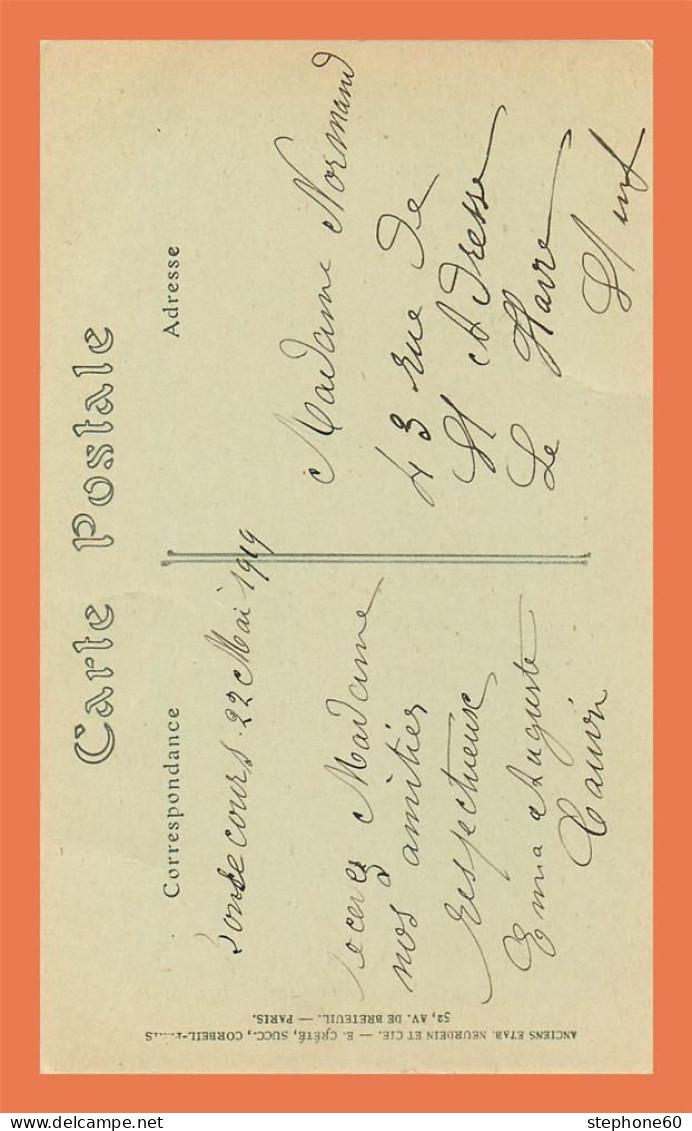 Carte Postale
Correspondance
Bonsecours. 22 Mai 1919
recevez Madame
nos amitiés
respectueuse
Emma Auguste
Cauvin
Adresse
Madame Normand
43 rue de
St Adresse
Le Havre
ANCIENS ETAB. NEURDEIN ET CIE. — E. CRÉTÉ, SUCC., CORBEIL-PARIS
52, AV. DE BRETEUIL. — PARIS.
stephone60